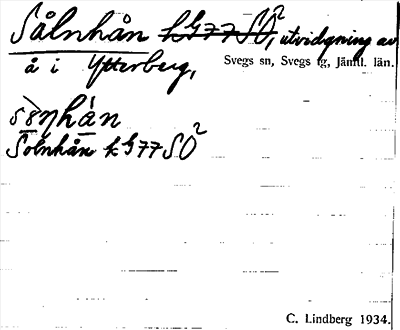 Sålnhån k G77SO², utvidgning av
å i Ytterberg,
Svegs sn, Svegs tg, Jämtl. län.
Solnhån k G77SO²
C. Lindberg 1934.